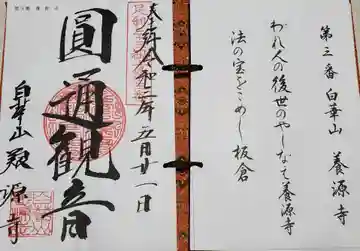 第三番 白華山 養源寺
われ人の後世のやしなて養源寺
法の宝をこめし板倉
奉拝 令和二年五月廿一日
圓通観音
白華山 養源寺